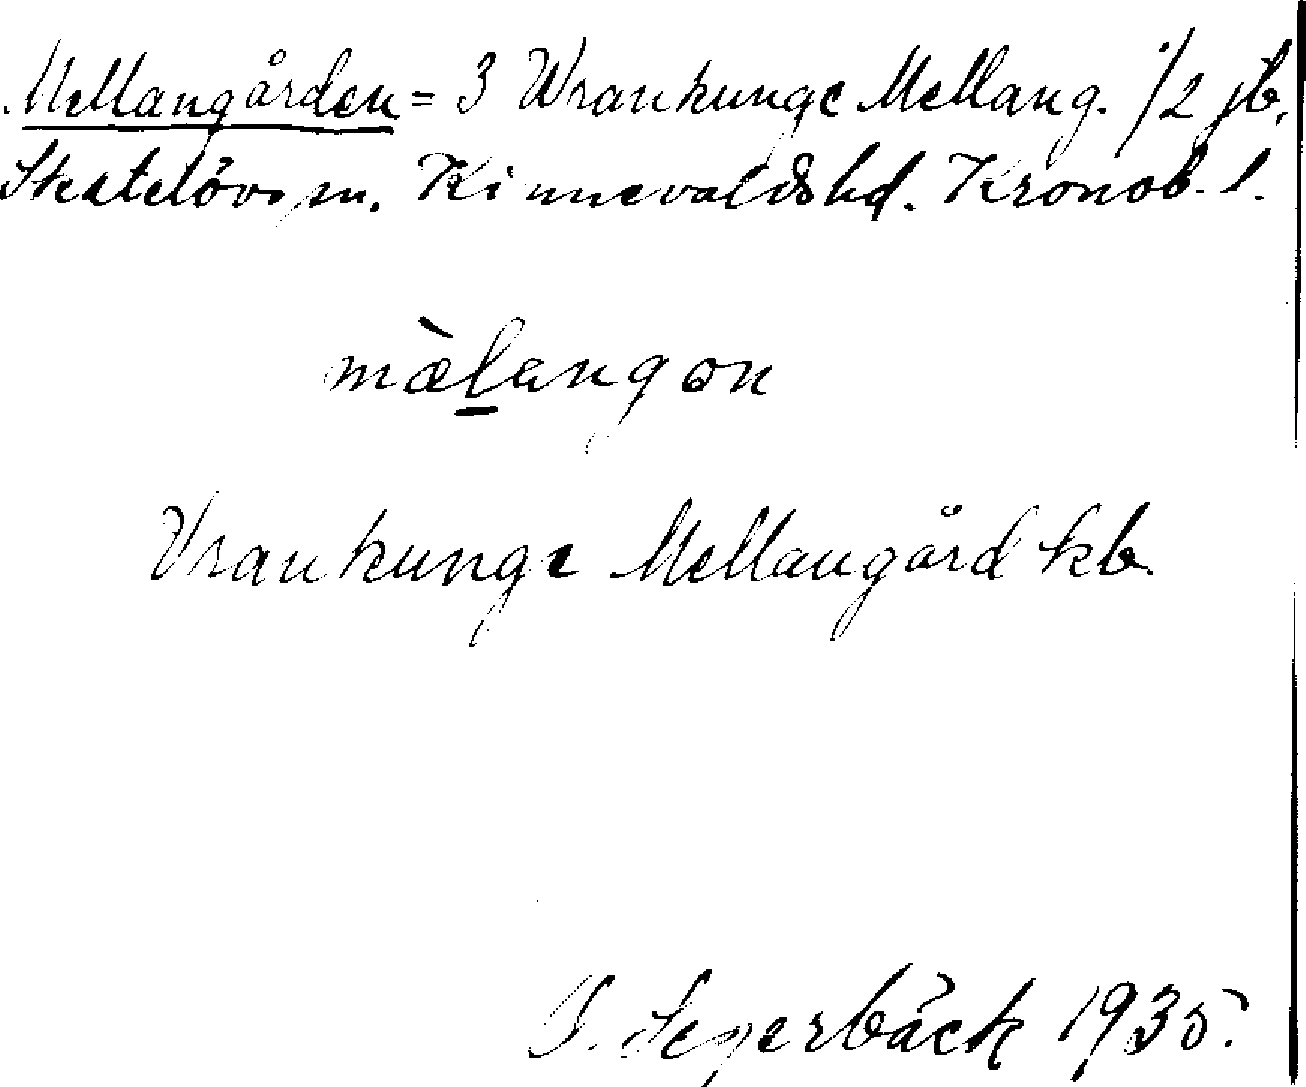 Mellangården = 3 Wrankunge Mellang. 1/2 jb.
Skatelövs sn. Kinnevalds hd. Kronob. l.
mæ̀langon
Vrankunge Mellangård kb.
Segerbäck 1935.